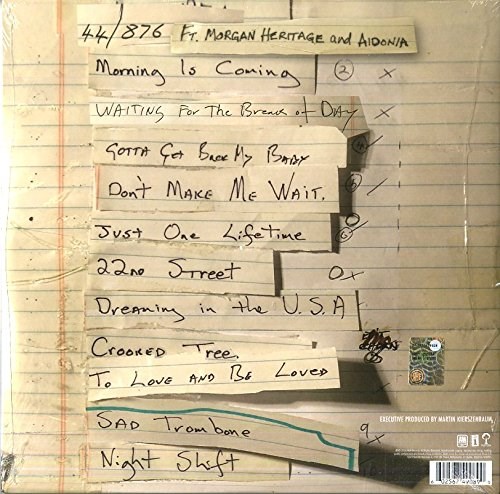 44/876 Ft. MORGAN HERITAGE and AIDONIA
Morning Is Coming ② X
WAITING For The Break of DAY X
GOTTA Get Back My BABY ④
Don't MAKE ME WAIT. /
Just One Lifetime ⑥
22nd Street 0 X
Dreaming in the U.S.A
CROOKED TREE
TO LOVE AND BE LOVED
SAD Trombone 9 X
Night Shift
EXECUTIVE PRODUCED BY MARTIN KIERSZENBAUM